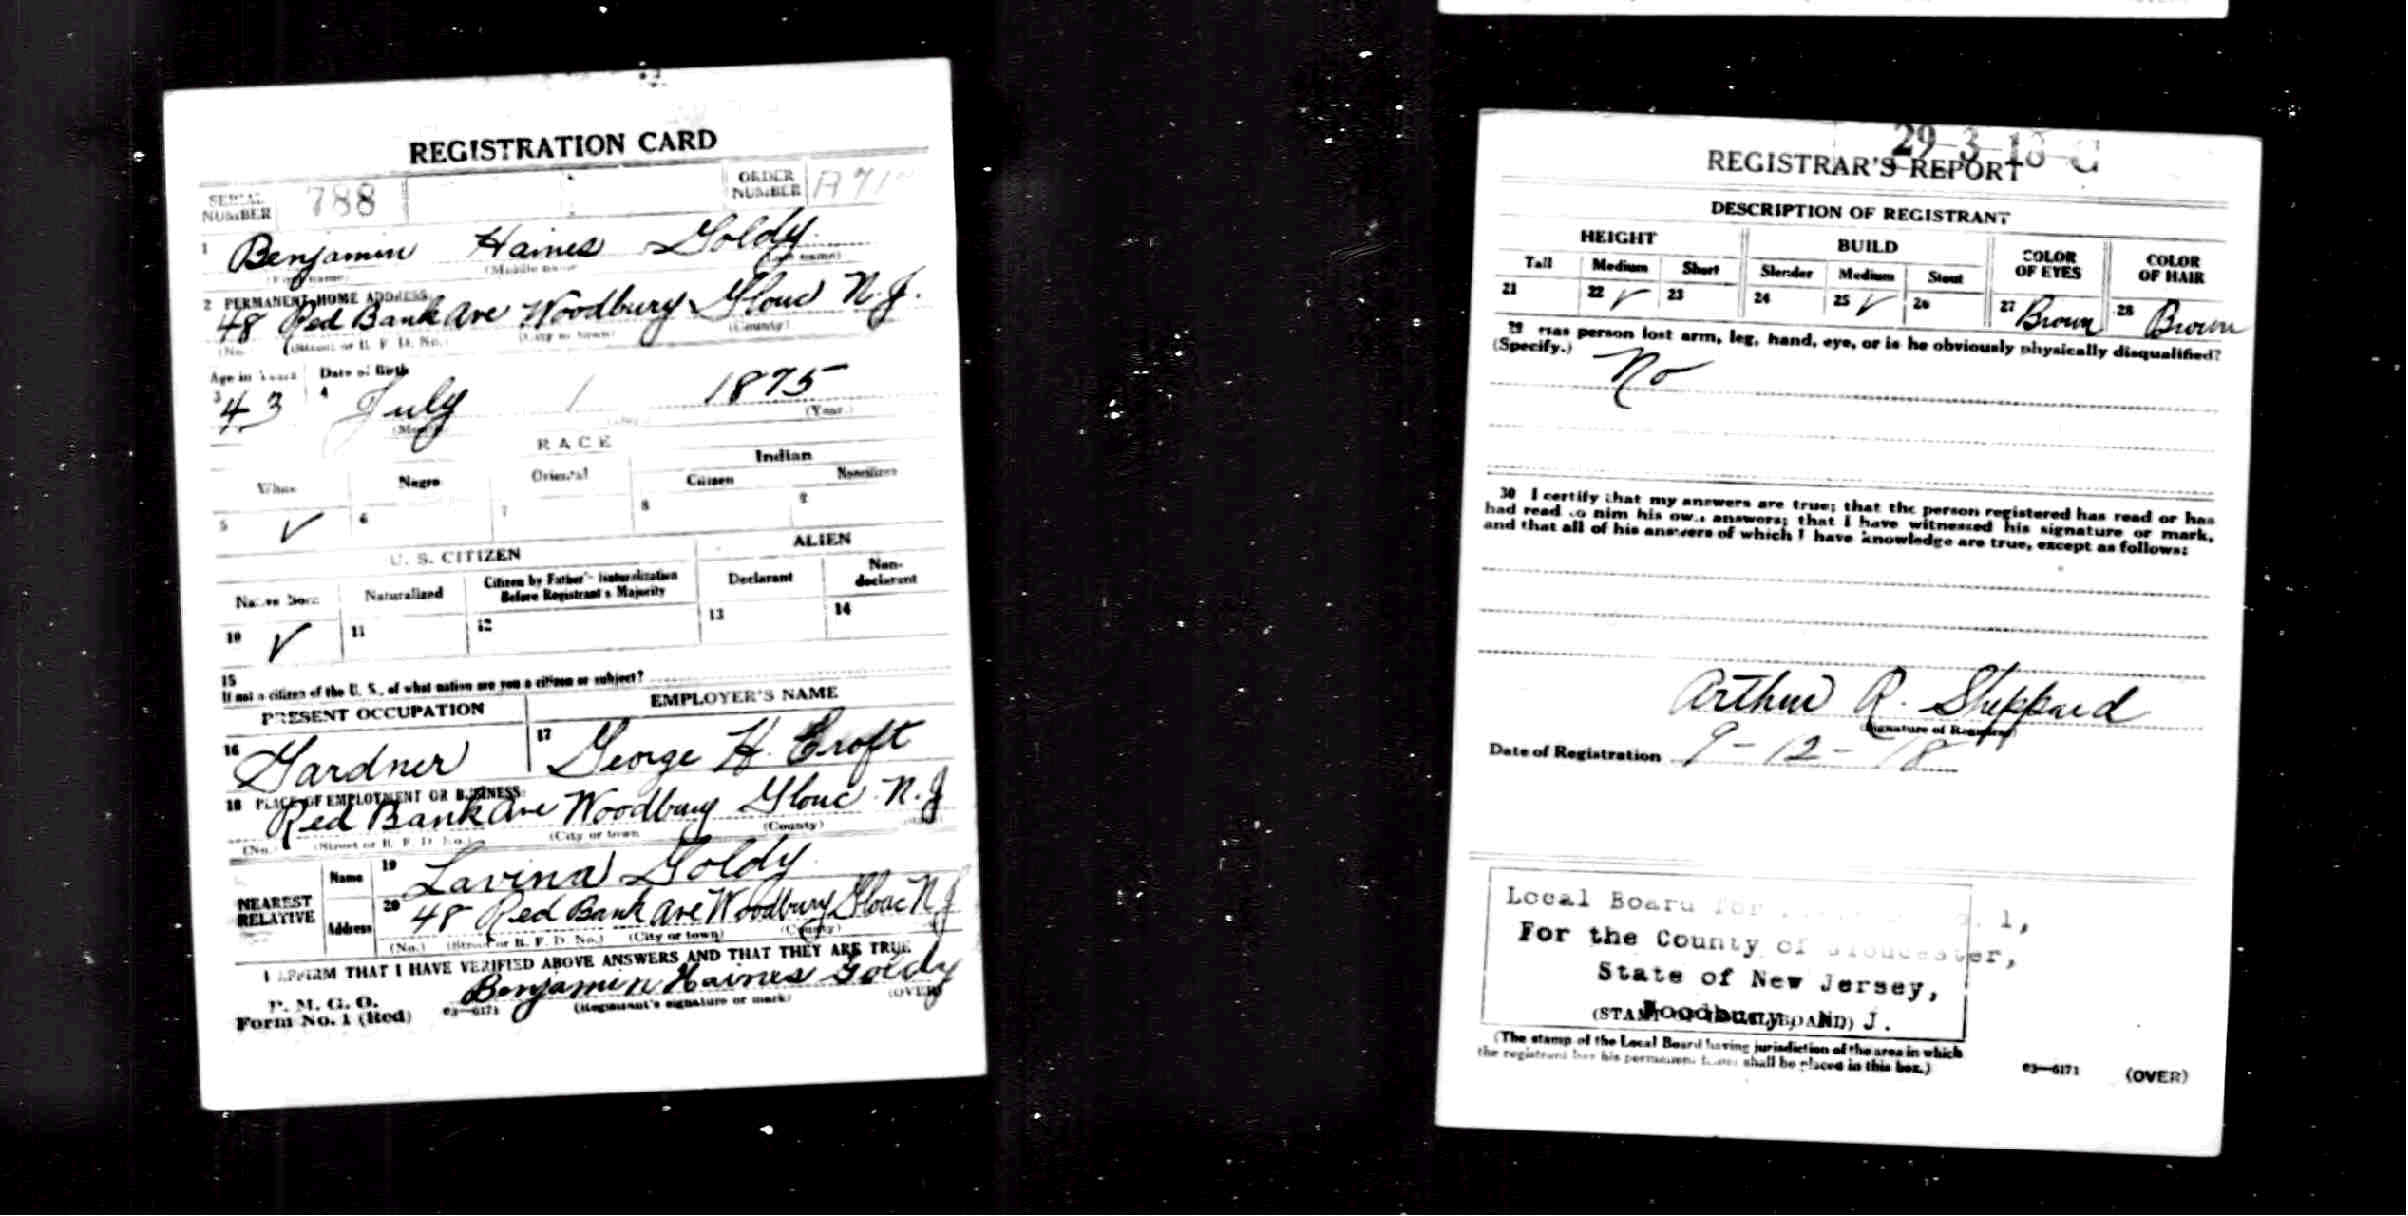 REGISTRATION CARD
SERIAL NUMBER 788 ORDER NUMBER
1 Benjamin Haines Goldy
(First name) (Middle name) (Last name)
2 PERMANENT HOME ADDRESS:
48 Red Bank ave Woodbury Glouc N.J.
(No.) (Street or R. F. D. No.) (City or town) (County)
Age in Years Date of Birth
3 43 4 July 1 1875
(Month) (Day) (Year)
RACE
White Negro Oriental Indian
Citizen Noncitizen
5 ✓ 6 7 8 9
U. S. CITIZEN ALIEN
Native Born Naturalized Citizen by Father's Naturalization Before Registrant's Majority Declarant Non-declarant
10 ✓ 11 12 13 14
15
If not a citizen of the U. S., of what nation are you a citizen or subject?
PRESENT OCCUPATION EMPLOYER'S NAME
16 Gardner 17 George H. Croft
18 PLACE OF EMPLOYMENT OR BUSINESS:
Red Bank ave Woodbury Glouc N.J
(No.) (Street or R. F. D. No.) (City or town (County)
NEAREST RELATIVE Name 19 Lavina Goldy
Address 20 48 Red Bank ave Woodbury Glouc N J
(No.) (Street or R. F. D. No.) (City or town) (County)
I AFFIRM THAT I HAVE VERIFIED ABOVE ANSWERS AND THAT THEY ARE TRUE
P. M. G. O.
Form No. 1 (Red) 03—6171 Benjamin Haines Goldy
(Registrant's signature or mark) (OVER)
29-3-18 C
REGISTRAR'S REPORT
DESCRIPTION OF REGISTRANT
HEIGHT BUILD COLOR OF EYES COLOR OF HAIR
Tall Medium Short Slender Medium Stout
21 22 ✓ 23 24 25 ✓ 26 27 Brown 28 Brown
29 Has person lost arm, leg, hand, eye, or is he obviously physically disqualified?
(Specify.) No
30 I certify that my answers are true; that the person registered has read or has
had read to him his own answers; that I have witnessed his signature or mark,
and that all of his answers of which I have knowledge are true, except as follows:
Arthur R. Sheppard
(Signature of Registrar)
Date of Registration 9-12-18
Local Board for 1,
For the County of Gloucester,
State of New Jersey,
Woodbury, N. J.
(STAMP OF LOCAL BOARD)
(The stamp of the Local Board having jurisdiction of the area in which
the registrant has his permanent home shall be placed in this box.)
03—6171 (OVER)